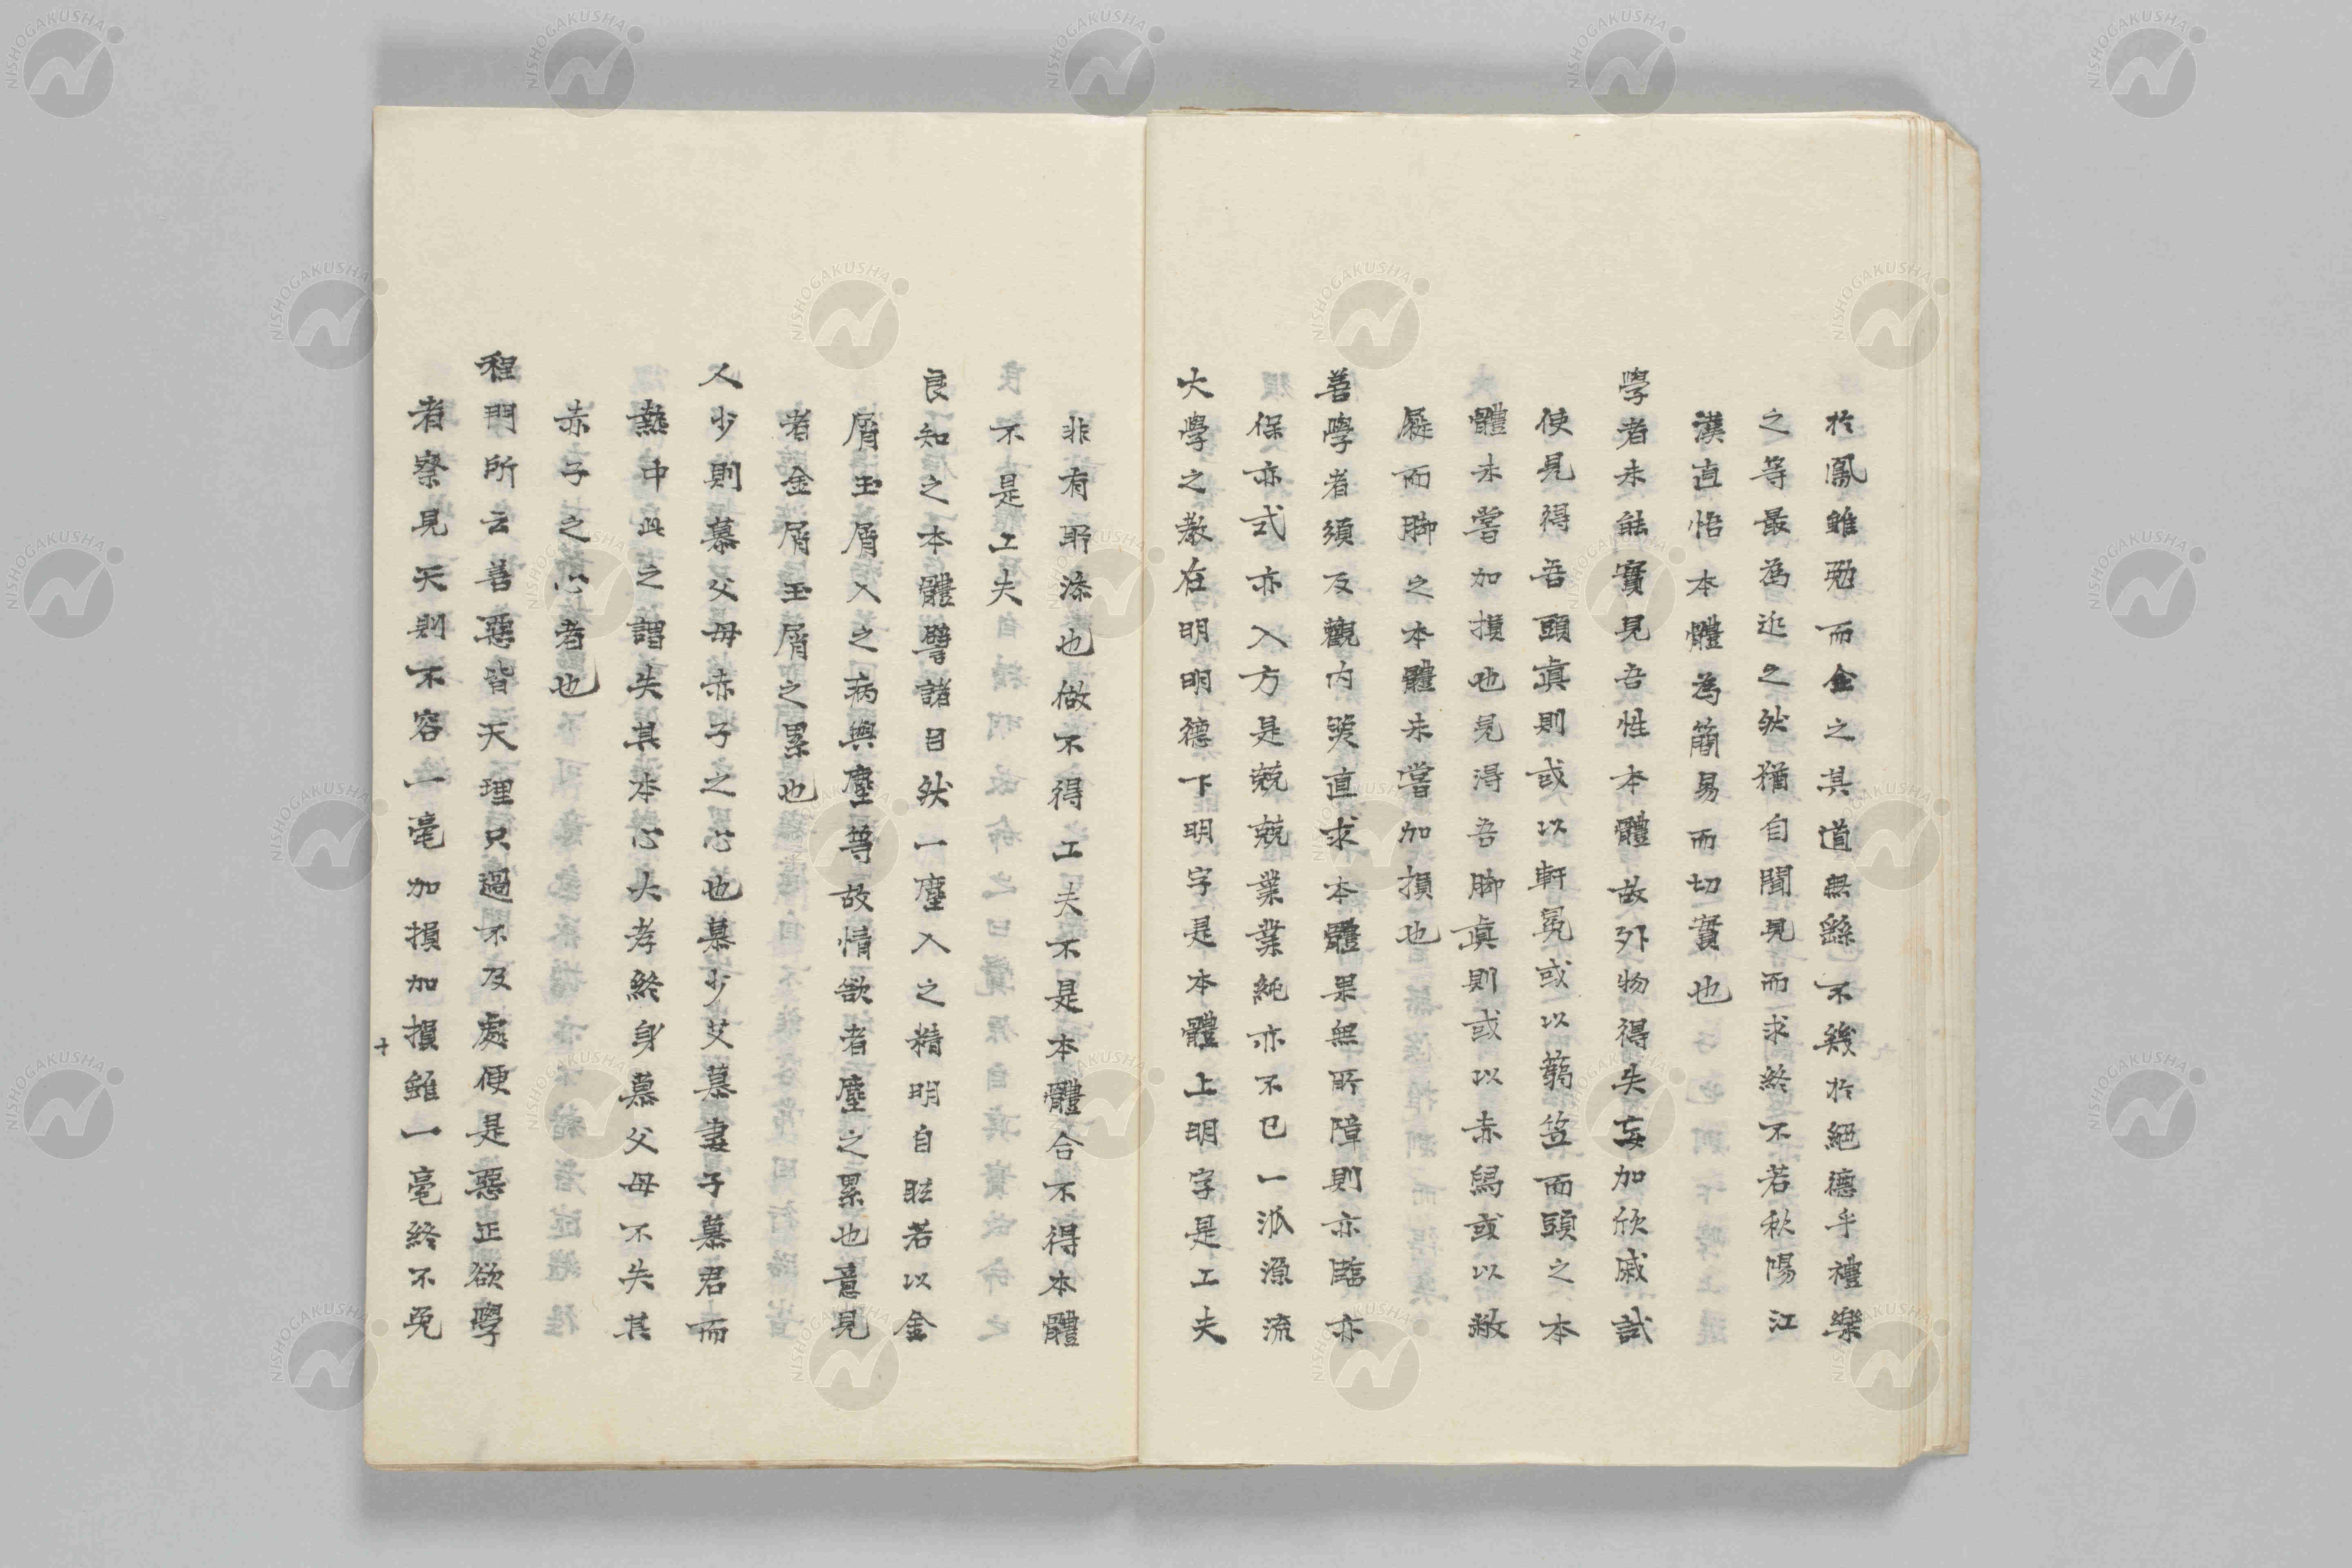 於鳳雖勉而企之其道無繇不幾於絕德乎禮樂
之等最為近之然猶自聞見而求終不若秋陽江
漢直悟本體為簡易而切實也
學者未能實見吾性本體故外物得失妄加欣戚試
使見得吾頭真則或以軒冕或以蒻笠而頭之本
體未嘗加損也見得吾脚真則或以赤舄或以敝
屣而脚之本體未嘗加損也
善學者須反觀內照直求本體果無所障則亦臨亦
保亦式亦入方是兢兢業業純亦不已一派源流
大學之教在明明德下明字是本體上明字是工夫
非有所添也做不得工夫不是本體合不得本體
不是工夫
良知之本體譬諸目然一塵入之精明自眩若以金
屑玉屑入之病與塵等故情欲者塵之累也意見
者金屑玉屑之累也
人少則慕父母赤子之心也慕少艾慕妻子慕君而
熱中此之謂失其本心大孝終身慕父母不失其
赤子之心者也
程門所云善惡皆天理只過不及處便是惡正欲學
者察見天則不容一毫加損加損雖一毫終不免
十
NISHOGAKUSHA